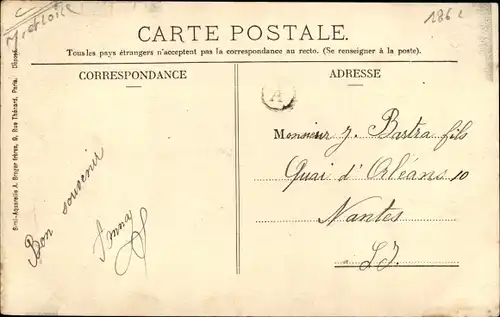 CARTE POSTALE.
Tous les pays étrangers n'acceptent pas la correspondance au recto. (Se renseigner à la poste).
CORRESPONDANCE
ADRESSE
186
A
Bon souvenir
Anna
Monsieur J. Bastra fils
Quai d'Orléans 10
Nantes
L.I.
Simi-Aquarelle A. Breger frères, 9, Rue Thénard, Paris. Déposé